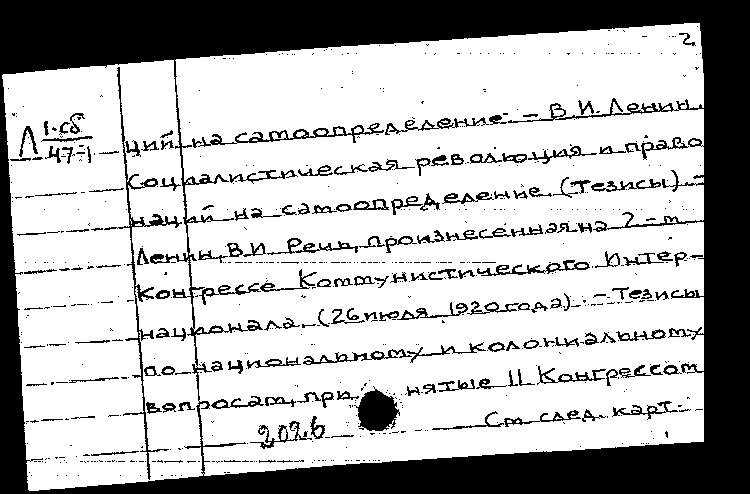 2.
Λ 1-сб
47-1
ций на самоопределение. – В.И. Ленин.
Социалистическая революция и право
наций на самоопределение. (Тезисы). –
Ленин, В.И. Речь, произнесенная на 2-м
Конгрессе Коммунистического Интер-
национала. (26 июля 1920 года). – Тезисы
по национальному и колониальному
вопросам, принятые II Конгрессом
2026
См. след. карт.